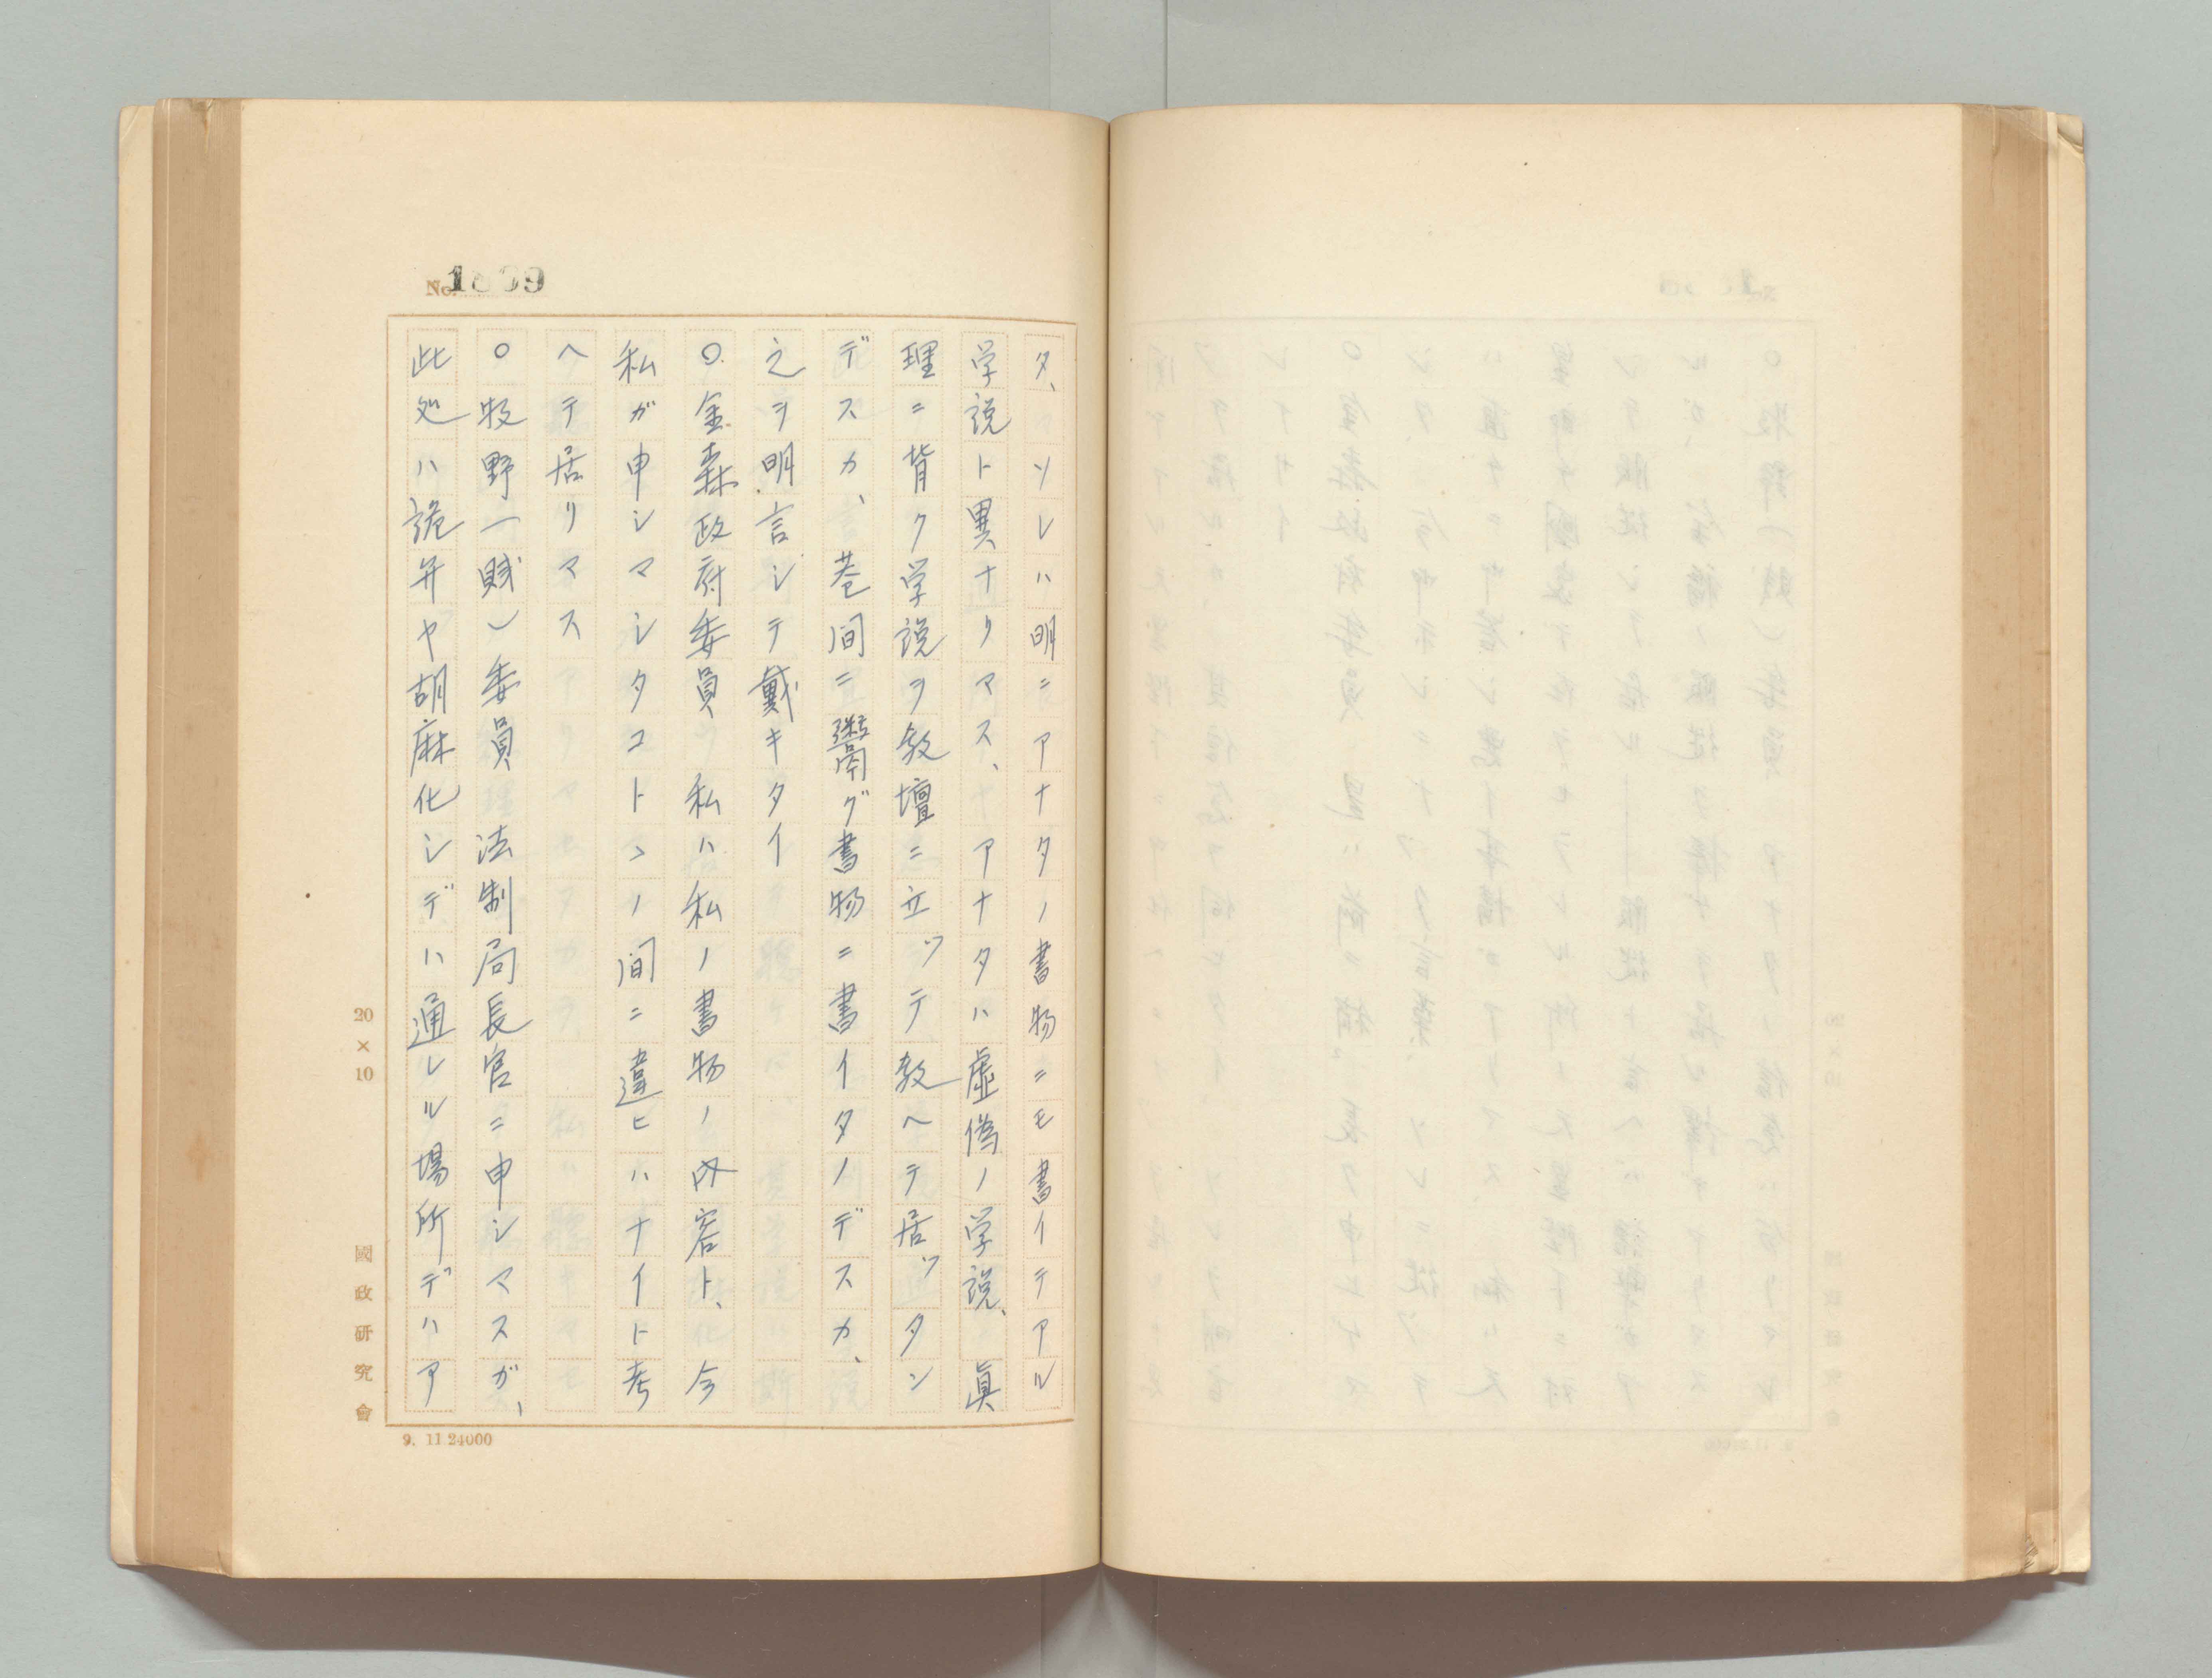 No.
タ、ソレハ明ニアナタノ書物ニモ書イテアル
学説ト異ナリマス、アナタハ虚偽ノ学説、眞
理ニ背ク学説ヲ教壇ニ立ツテ教ヘテ居ツタン
デスカ、巷間ニ鬻グ書物ニ書イタノデスカ、
之ヲ明言シテ戴キタイ
○金森政府委員 私ハ私ノ書物ノ内容ト、今
私ガ申シマシタコトヽノ間ニ違ヒハナイト考
ヘテ居リマス
○牧野(賤)委員 法制局長官ニ申シマスガ、
此処ハ詭弁ヤ胡麻化シデハ通レル場所デハア
20×10
國政研究會
9. 11 24000